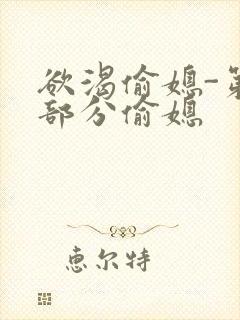 欲渴偷媳-第
部分偷媳
惠尔特